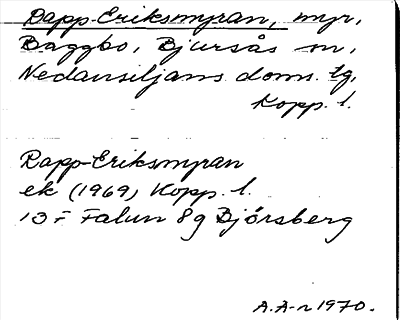 Dapp-Eriksmyran, myr,
Baggbo, Bjursås sn,
Nedansiljans doms. tg.
Kopp. l.
Rapp-Eriksmyran
ek (1969) Kopp. l.
13 F Falun 8 g Björsberg
A.A-n 1970.